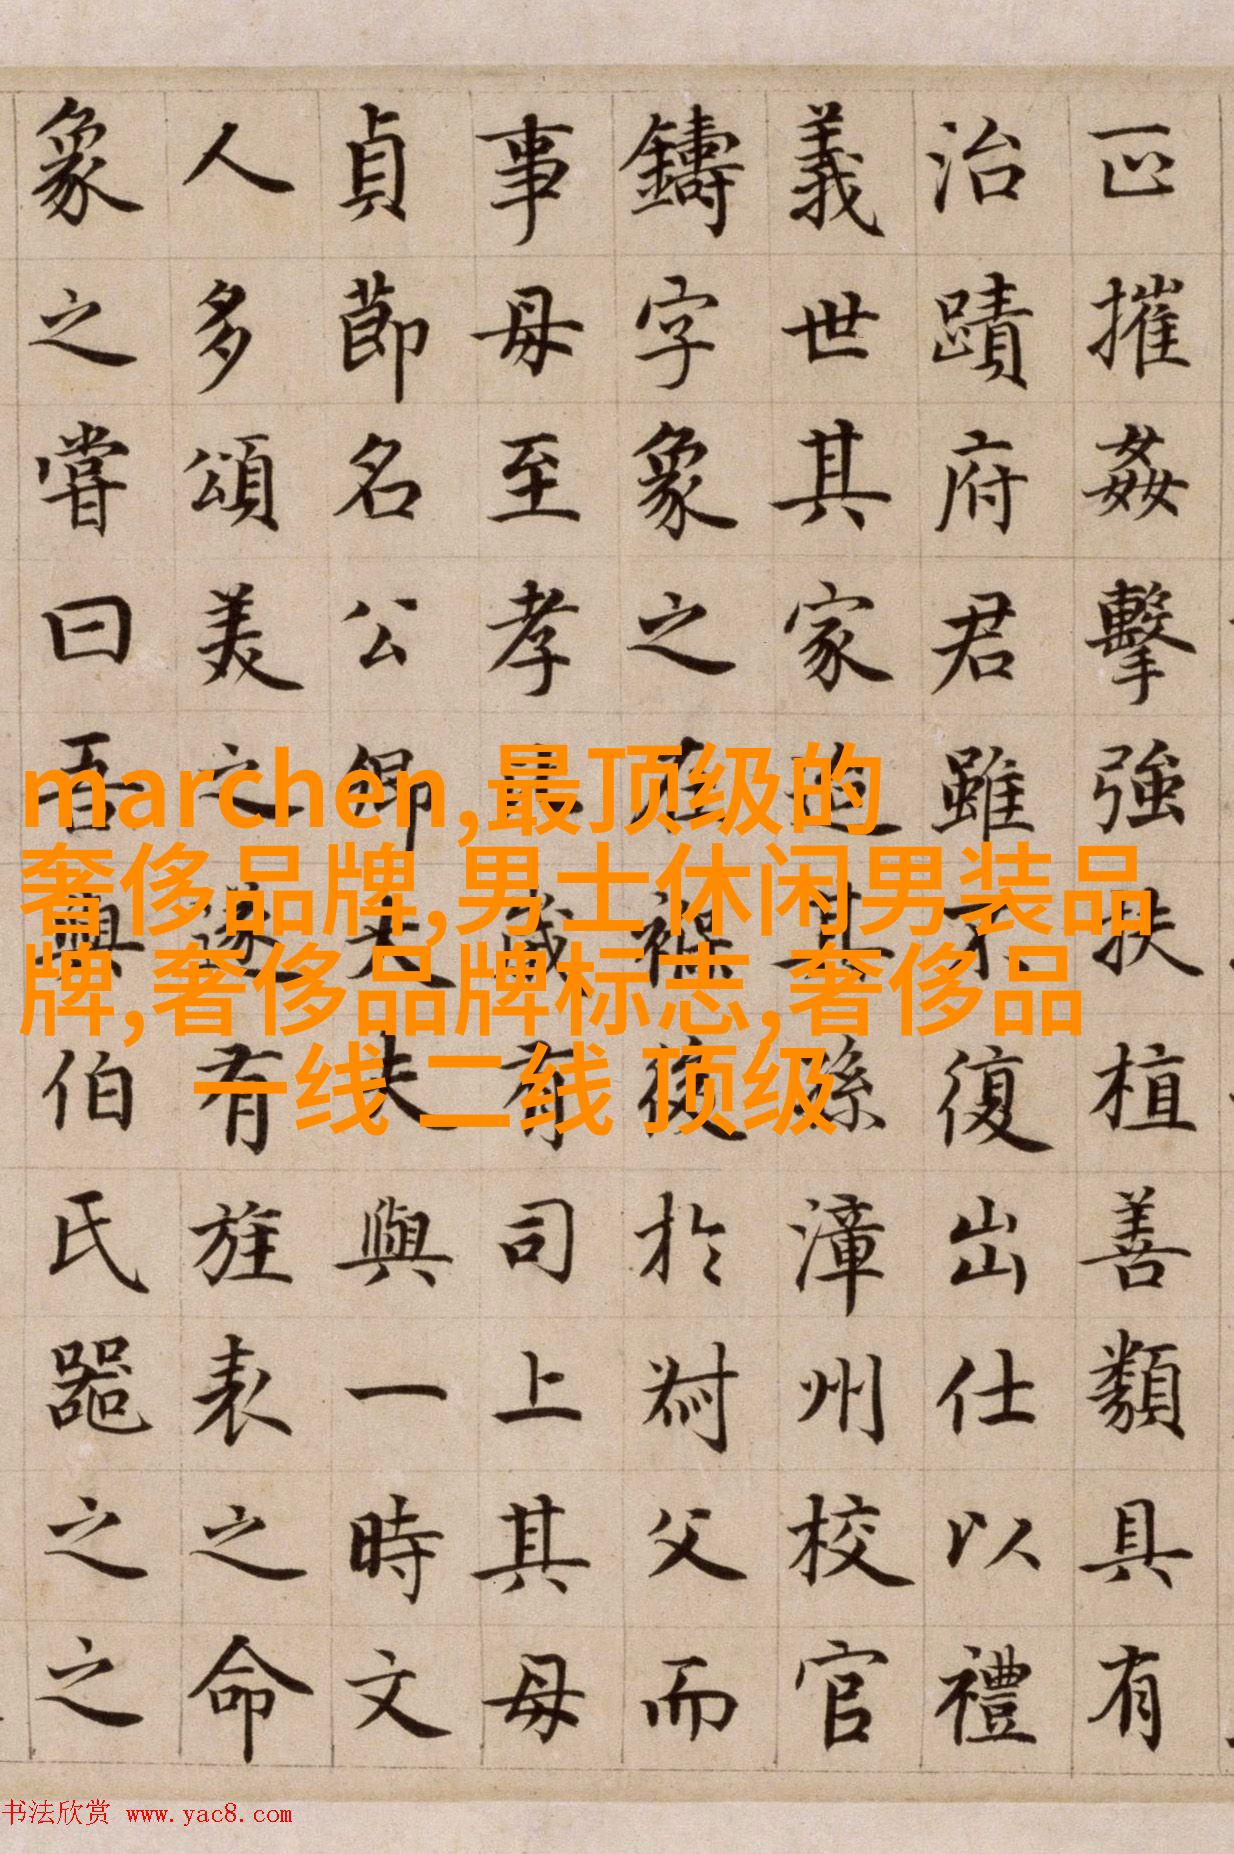 正摧姦擊強扶植善類具有
治蹟府君雖不復出仕以禮
義世其家迨其孫漳州校官
鑄字象之在褓後於父而
事母至孝歲有司上其母
貞節名公卿大夫與一時文
人多頌美之遂有旌表之命
象之嘗曰吾與伯氏器之之
marchen,最顶级的
奢侈品牌,男士休闲男装品
牌,奢侈品牌标志,奢侈品
一线 二线 顶级
书法欣赏 www.yac8.com